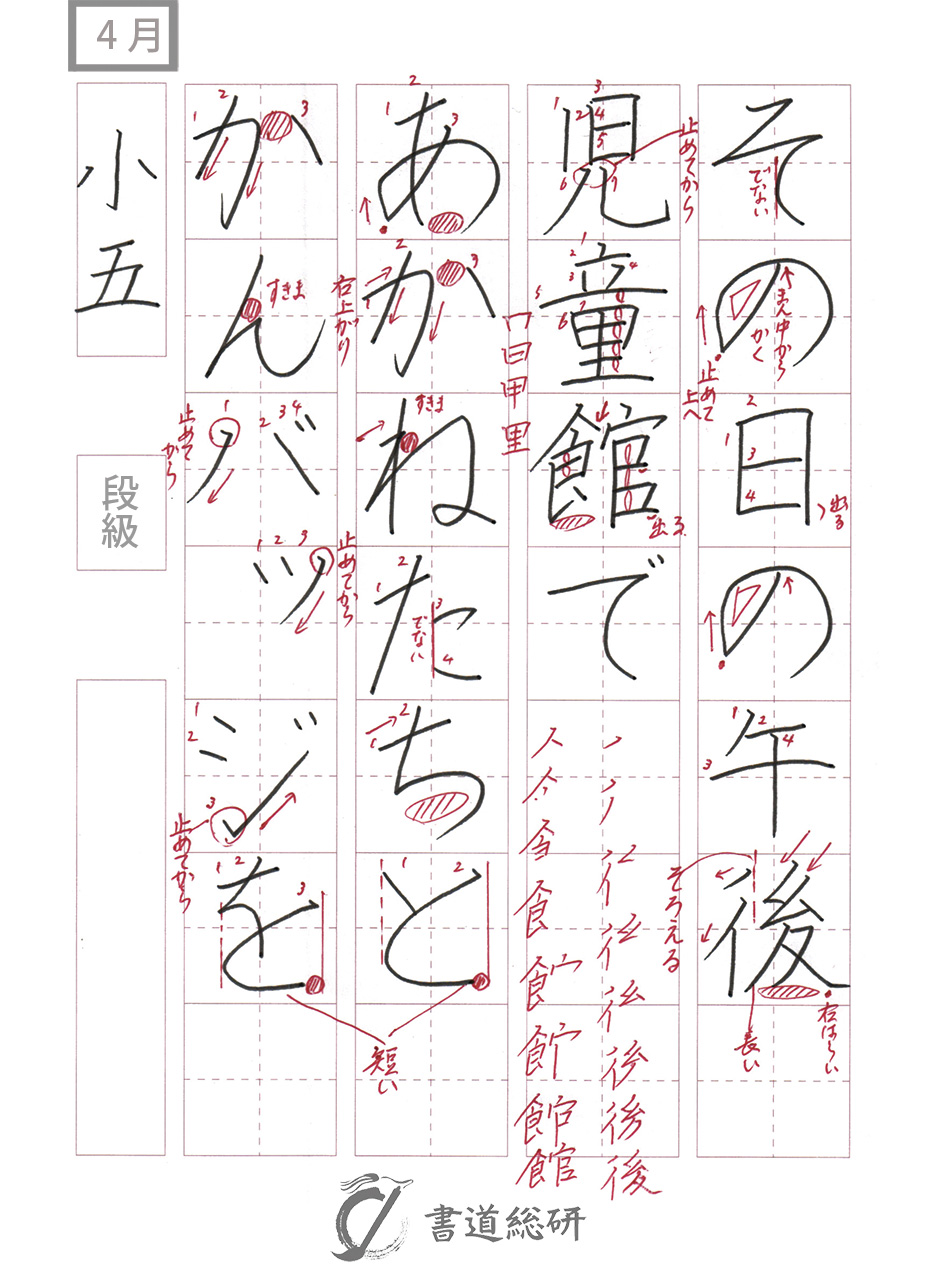 4月
その日の午後
児童館で
あかねたちと
かんバッジを
小五
段級
でない
まん中から
かく
止めて
上へ
出る
そろえる
長い
右はらい
止めてから
出る
口日甲里
すきま
でない
右上がり
短い
すきま
止めて
から
止めてから
止めてから
書道総研